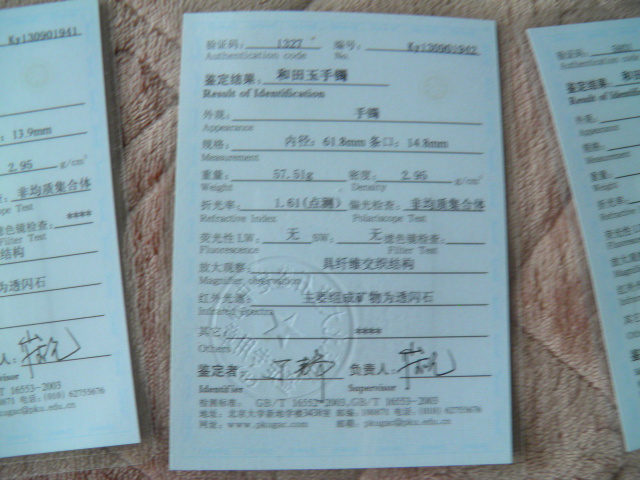 Ky130901941
13.9mm
2.95 g/cm³
非均质集合体
scope Test
检查: ****
Filter Test
结构
为透闪石
人:
T 16553-2003
电话: (010) 62755676
c@pku.edu.cn
验证码: 1327 编号: Ky130901942
Authentication code No
鉴定结果: 和田玉手镯
Result of Identification
外观: 手镯
Appearance
规格: 内径: 61.8mm 条口: 14.8mm
Measurement
重量: 57.51g 密度: 2.95 g/cm³
Weight Density
折光率: 1.61(点测) 偏光检查: 非均质集合体
Refractive Index Polariscope Test
荧光性LW: 无 SW: 无 滤色镜检查:
Fluorescence Filter Test
放大观察: 具纤维交织结构
Magnifier observation
红外光谱: 主要组成矿物为透闪石
Infrared spectra
其它: ****
Others
鉴定者: 负责人:
Identifier Supervisor
检测标准: GB/T 16552-2003, GB/T 16553-2003
邮编: 100871 电话: (010) 62755676
网址: www.pkugac.com 邮箱: pkugac@pku.edu.cn
验证码:
Authentication code
鉴定结果:
Result of Identif
外观:
Appearance
规格:
Measurement
重量:
Weight
折光率
Refractive